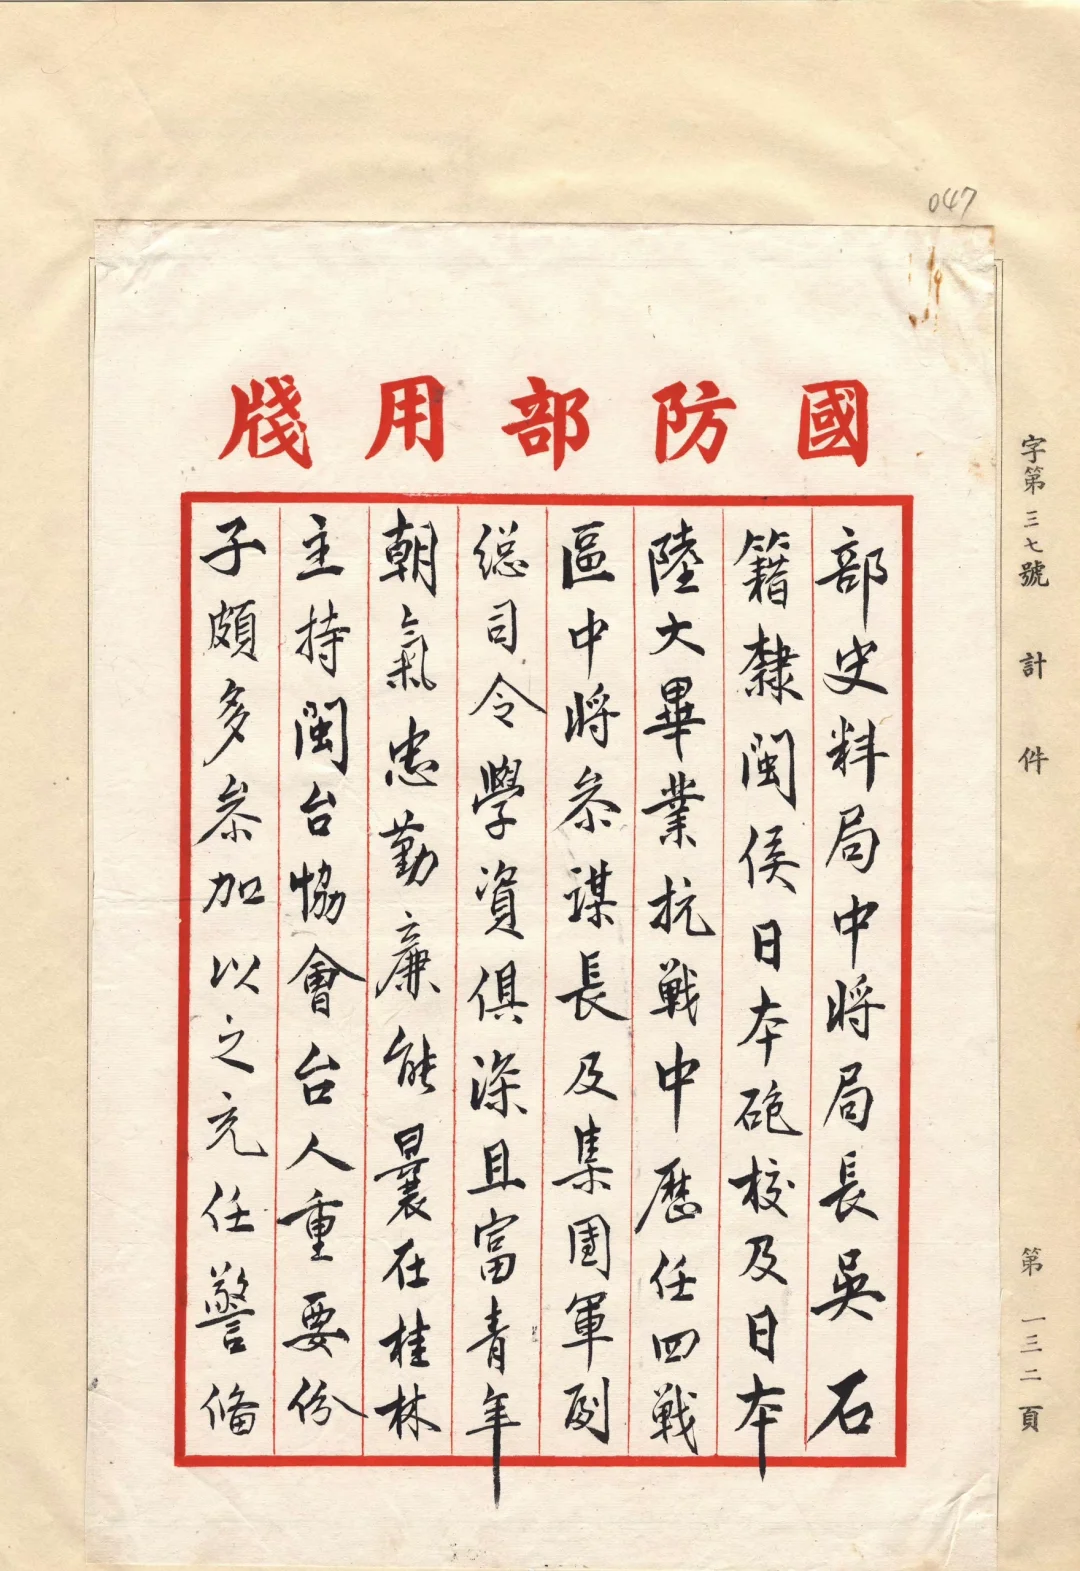 047
國防部用牋
部史料局中將局長吳石
籍隸閩侯日本砲校及日本
陸大畢業抗戰中歷任四戰
區中將參謀長及集團軍副
総司令學資俱深且富青年
朝氣忠勤廉能曩在桂林
主持閩台協會台人重要份
子頗多參加以之充任警俻
字第三七號 計 件 第一三二頁